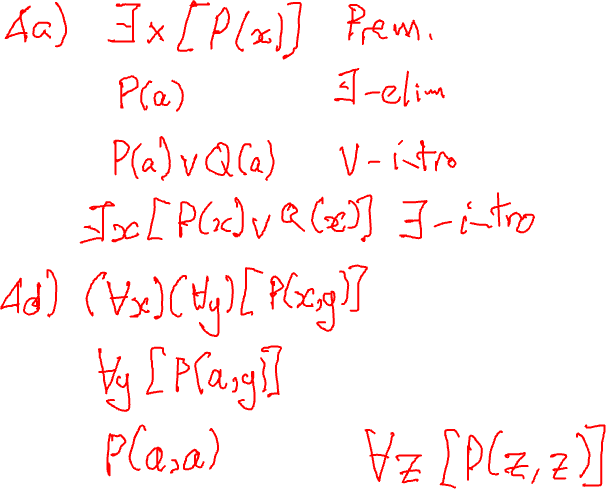 4a) ∃x[P(x)] Prem.
P(a) ∃-elim
P(a)∨Q(a) ∨-intro
∃x[P(x)∨Q(x)] ∃-intro
4d) (∀x)(∀y)[P(x,y)]
∀y[P(a,y)]
P(a,a) ∀z[P(z,z)]